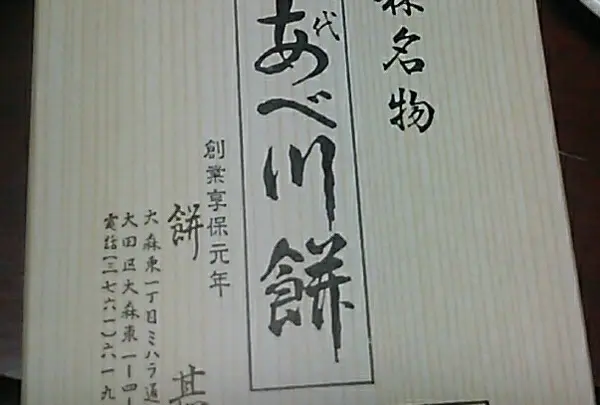 森名物
代
あべ川餅
創業享保元年
餅
大森東一丁目ミハラ通
大田区大森東一ー四ー
電話(三七六一)六一九